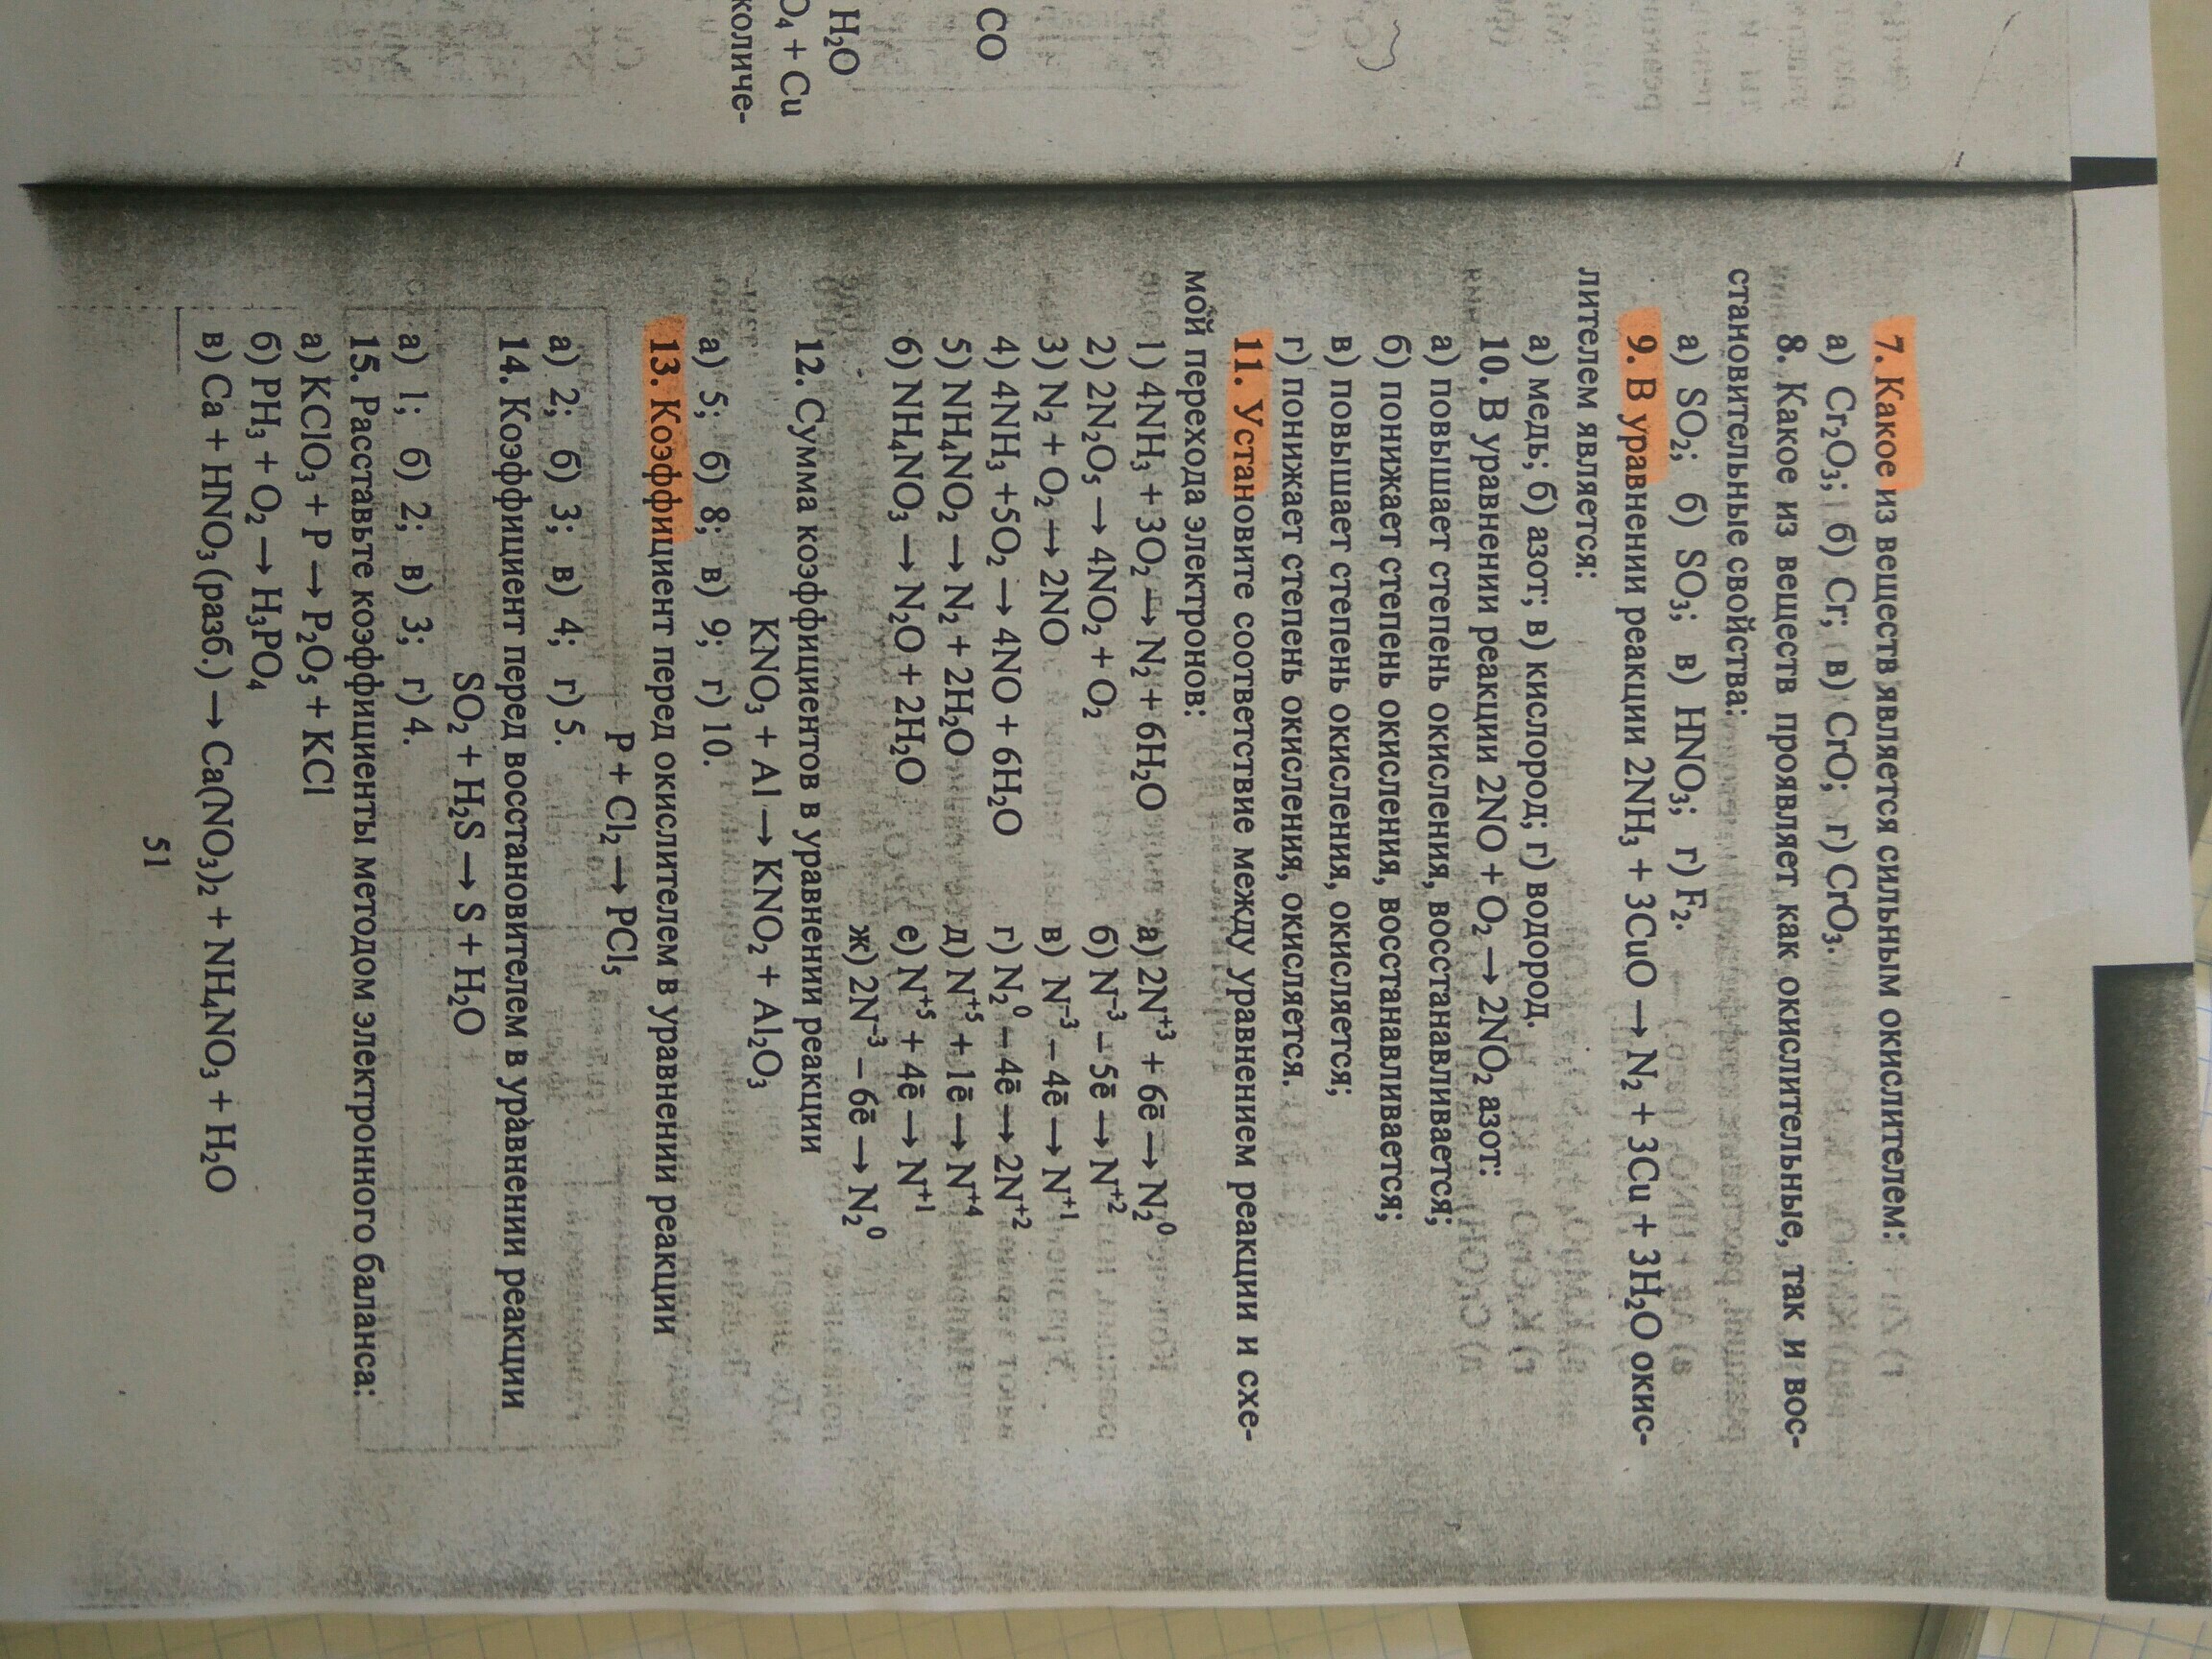 H₂O
O₄ + Cu
количе-
CO
7. Какое из веществ является сильным окислителем:
а) Cr₂O₃; б) Cr; в) CrO; г) CrO₃.
8. Какое из веществ проявляет как окислительные, так и вос-
становительные свойства:
а) SO₂; б) SO₃; в) HNO₃; г) F₂.
9. В уравнении реакции 2NH₃ + 3CuO → N₂ + 3Cu + 3H₂O окис-
лителем является:
а) медь; б) азот; в) кислород; г) водород.
10. В уравнении реакции 2NO + O₂ → 2NO₂ азот:
а) повышает степень окисления, восстанавливается;
б) понижает степень окисления, восстанавливается;
в) повышает степень окисления, окисляется;
г) понижает степень окисления, окисляется.
11. Установите соответствие между уравнением реакции и схе-
мой перехода электронов:
1) 4NH₃ + 3O₂ → N₂ + 6H₂O а) 2N⁺³ + 6ē → N₂⁰
2) 2N₂O₅ → 4NO₂ + O₂ б) N⁻³ – 5ē → N⁺²
3) N₂ + O₂ → 2NO в) N⁻³ – 4ē → N⁺¹
4) 4NH₃ +5O₂ → 4NO + 6H₂O г) N₂⁰ – 4ē → 2N⁺²
5) NH₄NO₂ → N₂ + 2H₂O д) N⁺⁵ + 1ē → N⁺⁴
6) NH₄NO₃ → N₂O + 2H₂O е) N⁺⁵ + 4ē → N⁺¹
ж) 2N⁻³ – 6ē → N₂⁰
12. Сумма коэффициентов в уравнении реакции
KNO₃ + Al → KNO₂ + Al₂O₃
а) 5; б) 8; в) 9; г) 10.
13. Коэффициент перед окислителем в уравнении реакции
P + Cl₂ → PCl₅
а) 2; б) 3; в) 4; г) 5.
14. Коэффициент перед восстановителем в уравнении реакции
SO₂ + H₂S → S + H₂O
а) 1; б) 2; в) 3; г) 4.
15. Расставьте коэффициенты методом электронного баланса:
а) KClO₃ + P → P₂O₅ + KCl
б) PH₃ + O₂ → H₃PO₄
в) Ca + HNO₃ (разб.) → Ca(NO₃)₂ + NH₄NO₃ + H₂O
51